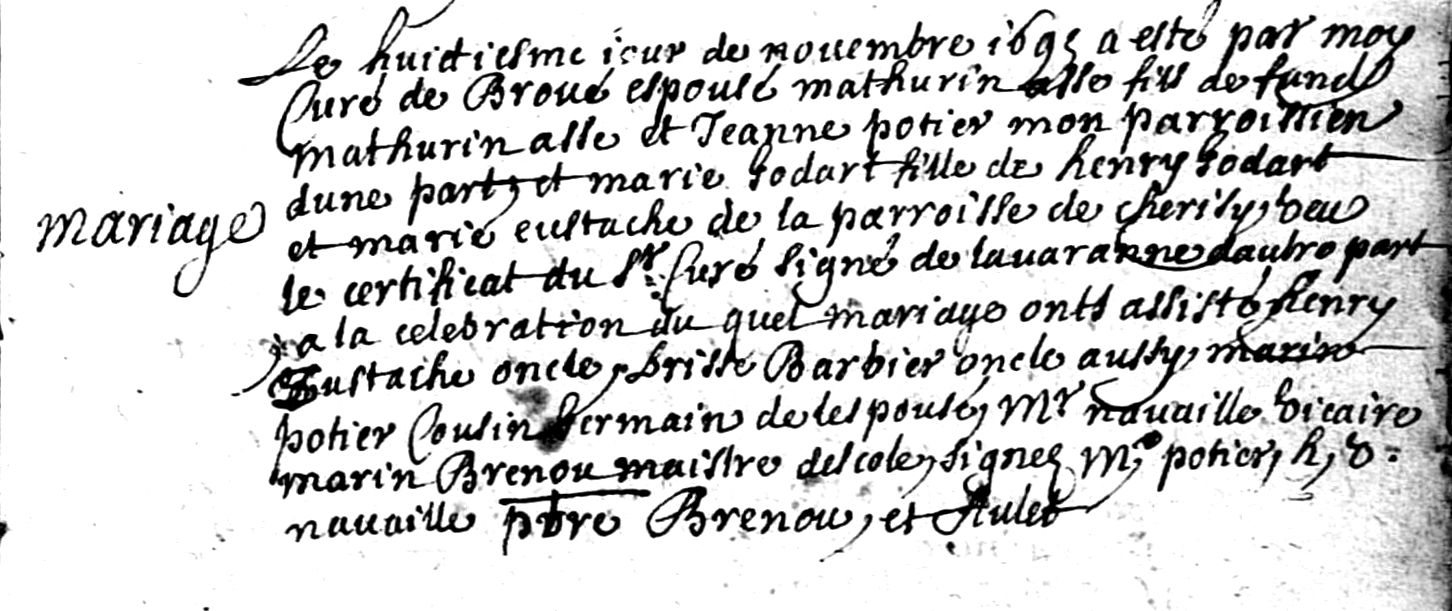 Le huictiesme iour de nouembre 1695 a esté par moy
Curé de Broué espousé mathurin asse fils de
mathurin asse et Jeanne potier mon parroissien
dune part, et marie Godart fille de henry Godart
et marie eustache de la parroisse de cherisy, veu
le certificat du Sr. Curé signé de lauaranne dautre part
a la celebration du quel mariage onts assisté henry
Eustache oncle, brisse Barbier oncle aussy, marin
potier Cousin germain de lespousé, Mr nauaille vicaire
marin Brenou maistre descole, signez M, potier, h,
nauaille pbre Brenou, et
mariage